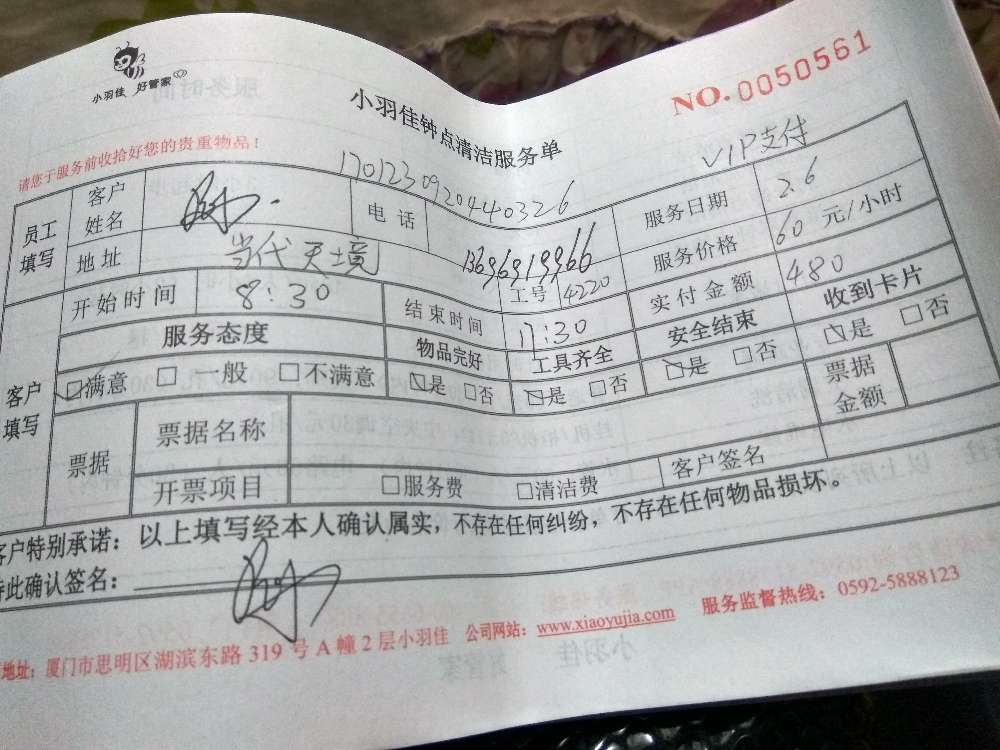 小羽佳 好管家
NO.0050561
小羽佳钟点清洁服务单
请您于服务前收拾好您的贵重物品！
170123092044032​6
VIP支付
员工填写
客户姓名
电话
服务日期 2.6
地址 当代天境
13696919966
服务价格 60 元/小时
开始时间 8:30
结束时间 17:30
工号 4220
实付金额 480
客户填写
服务态度 物品完好 工具齐全 安全结束 收到卡片
☑满意 □一般 □不满意 ☑是 □否 ☑是 □否 ☑是 □否 ☑是 □否
票据 票据名称 票据金额
开票项目 □服务费 □清洁费 客户签名
客户特别承诺：以上填写经本人确认属实，不存在任何纠纷，不存在任何物品损坏。
特此确认签名：
地址：厦门市思明区湖滨东路 319 号 A 幢 2 层小羽佳 公司网站：www.xiaoyujia.com 服务监督热线：0592-5888123